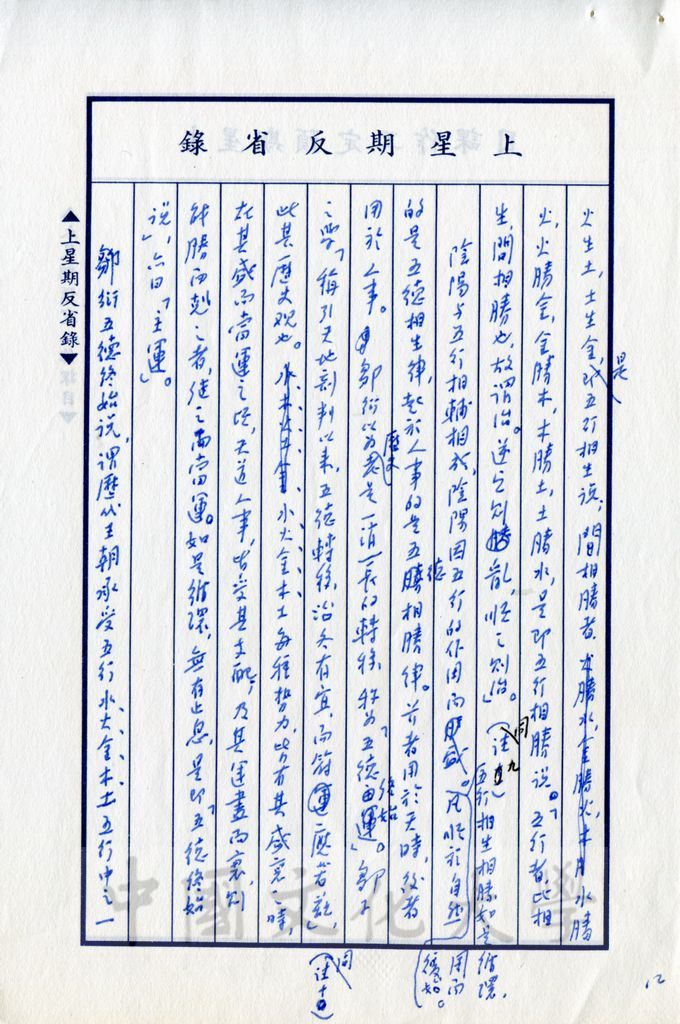 錄省反期星上
火生土,土生金,即五行相生說,間相勝者 水勝
是
火,火勝金,金勝木,木勝土,土勝水,是即五行相勝說。「五行者比相
生,間相勝也,故謂治。逆之則亂,順之則治。」(註九)
同
陰陽與五行相輔相成,陰陽因五行的作用而
凡順於自然
五行相生相勝如是循環,
用而
的是五德相生律,起於人事的是五德相勝律。前者用於天時,後者
用於人事。鄒衍以為歷史是一消一長的轉移,稱為「五德終始」。鄒子
之學「稱引天地剖判以來,五德轉移,治各有宜,而符應若茲」,
(同註十)
此其歷史觀也。水火金木土每種勢力,皆有其盛衰之時,
在其盛而當運之時,天道人事,皆受其支配,及其運盡而衰,則
能勝而剋之者,繼之而當運。如是循環,無有止息,是即「五德終始
說」,亦曰「主運」。
鄒衍五德終始說,謂歷代王朝承受五行水、火、金、木、土五行中之一
▲上星期反省錄▼
中國文化大學
12